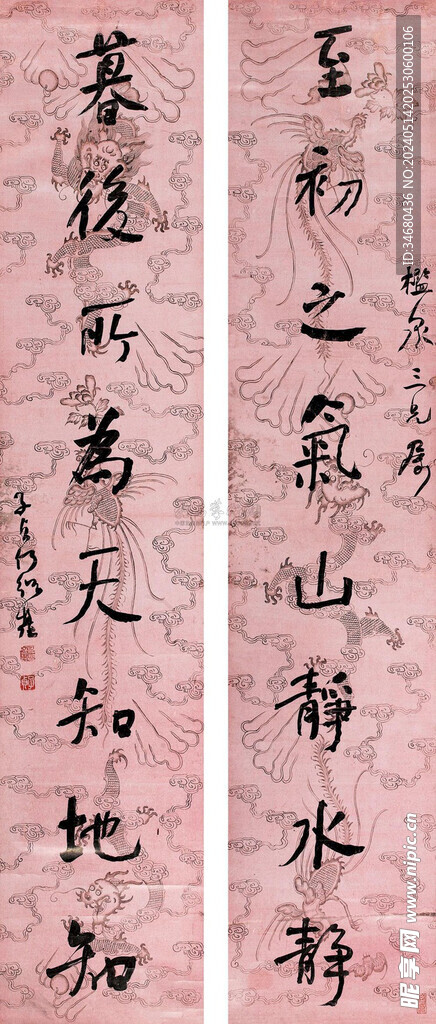 至初之氣山靜水靜
三兄屬
暮後所為天知地知
子貞何紹基
ID:34680436 NO:20240514202530600106
昵享网 www.nipic.cn